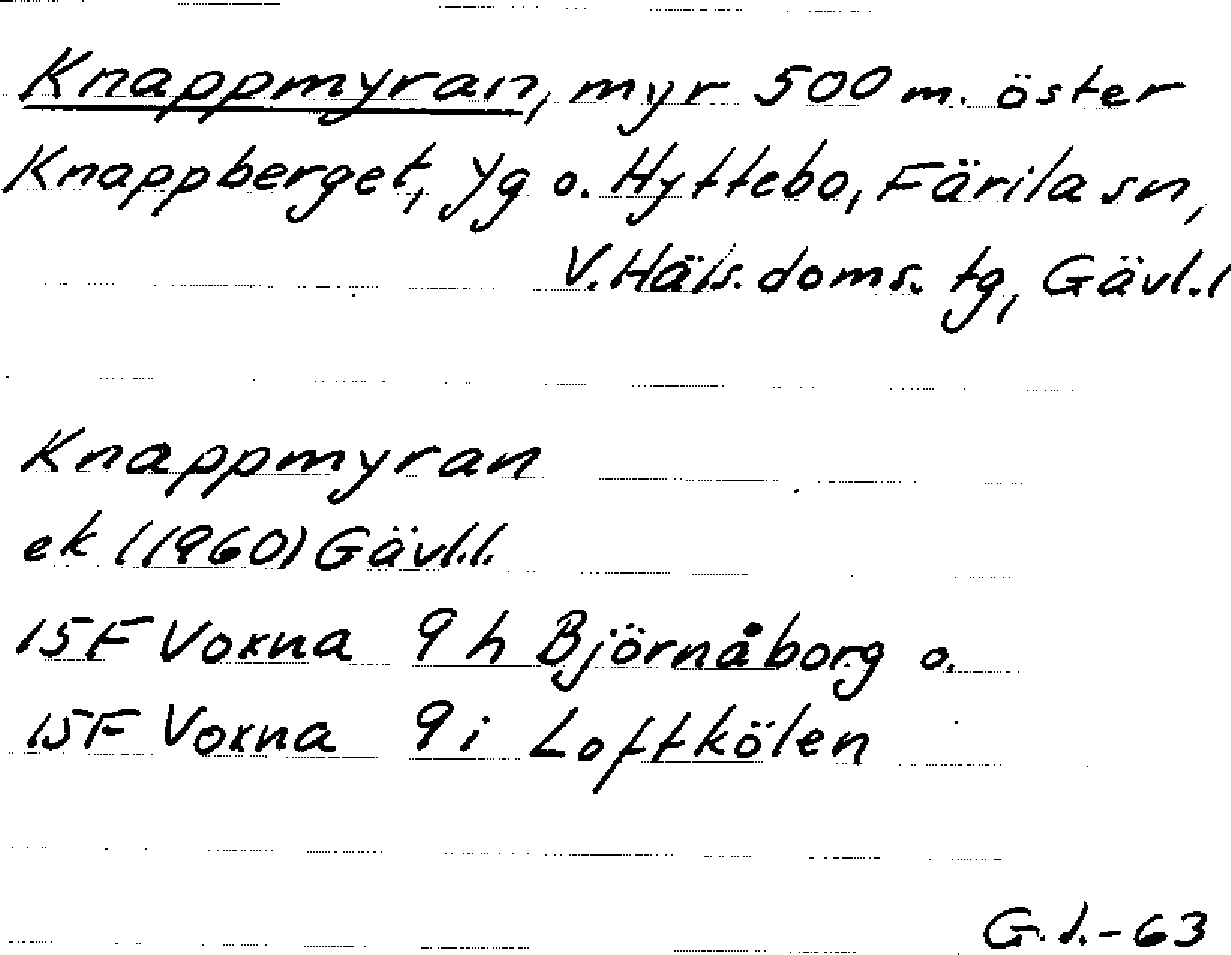 Knappmyran, myr 500 m. öster
Knappberget, Yg o. Hyttebo, Färila sn,
V. Häls. doms. tg, Gävl. l
Knappmyran
ek (1960) Gävl.l.
15F Voxna 9 h Björnåborg o.
15F Voxna 9 i Loftkölen
G.J.-63